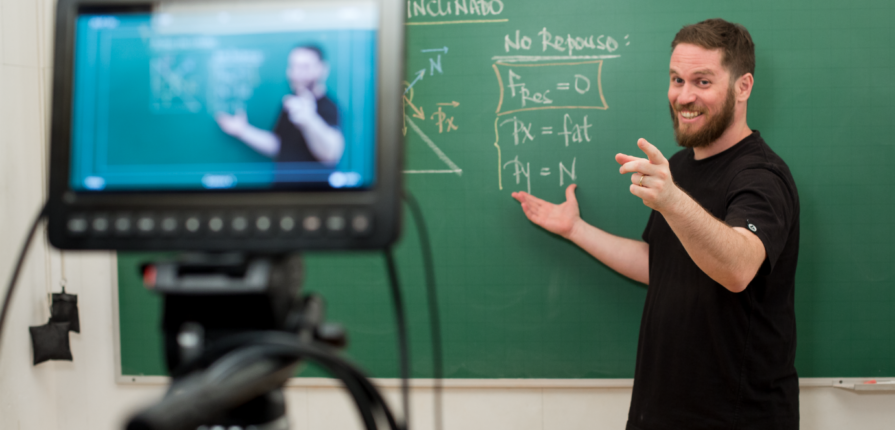 INCLINADO
No Repouso:
N
FRes = 0
Px
Px = fat
Py = N